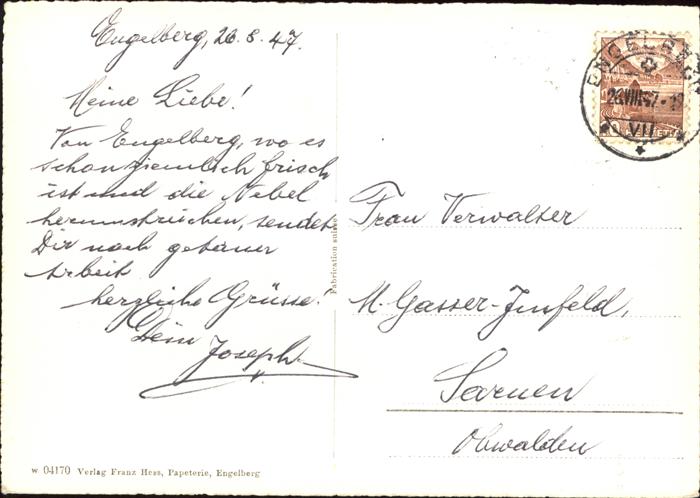 Engelberg, 26.8.47.
Meine Liebe!
Von Engelberg, wo es
schon ziemlich frisch
ist und die Nebel
herumstreichen, sendet
Dir nach getaner
Arbeit
herzliche Grüsse.
Dein Joseph.
W 04170 Verlag Franz Hess, Papeterie, Engelberg
Fabrication suisse
ENGELBERG
26.VIII.47
VII
Frau Verwalter
M. Gasser-Imfeld,
Sarnen
Obwalden